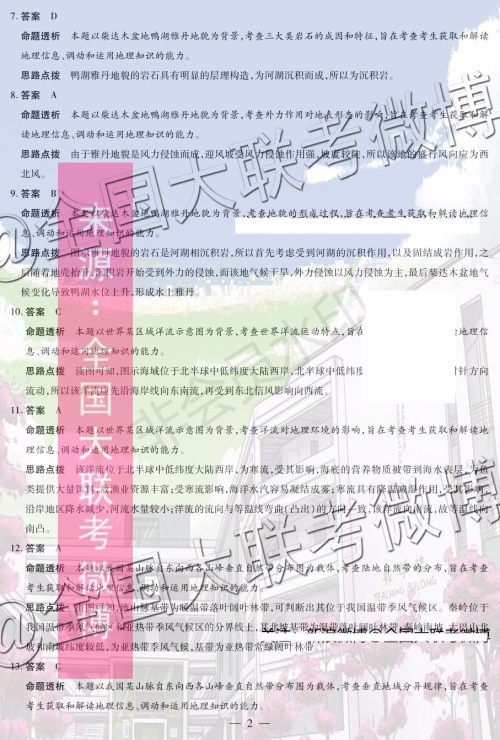 7. 答案 D
命题透析 本题以柴达木盆地鸭湖雅丹地貌为背景,考查三大类岩石的成因和特征,旨在考查考生获取和解读
地理信息、调动和运用地理知识的能力。
思路点拨 鸭湖雅丹地貌的岩石具有明显的层理构造,为河湖沉积而成,所以为沉积岩。
8. 答案 A
命题透析 本题以柴达木盆地鸭湖雅丹地貌为背景,考查外力作用对地表形态的影响,旨在考查考生获取和解
读地理信息、调动和运用地理知识的能力。
思路点拨 由于雅丹地貌是风力侵蚀而成,迎风坡受风力侵蚀作用强,坡度较陡,所以该地的盛行风向应为西
北风。
9. 答案 B
命题透析 本题以柴达木盆地鸭湖雅丹地貌为背景,考查地貌的形成过程,旨在考查考生获取和解读地理信
息、调动和运用地理知识的能力。
思路点拨 图示雅丹地貌的岩石是河湖相沉积岩,所以首先考虑受到河湖的沉积作用,以及固结成岩作用,之
后随着地壳抬升,沉积岩开始受到外力的侵蚀,而该地气候干旱,外力侵蚀以风力侵蚀为主,最后柴达木盆地气
候变化导致鸭湖水位上升,形成水上雅丹。
10. 答案 C
命题透析 本题以世界某区域洋流示意图为背景,考查世界洋流运动特点,旨在 地理信
息、调动和运用地理知识的能力。
思路点拨 读图可知,图示海域位于北半球中低纬度大陆西岸,北半球中低纬度 针方向
流动,所以该洋流应先沿海岸线向东南流,再受到东北信风影响向西流。
11. 答案 A
命题透析 本题以世界某区域洋流示意图为背景,考查洋流对地理环境的影响,旨在考查考生获取和解读地
理信息、调动和运用地理知识的能力。
思路点拨 该洋流位于北半球中低纬度大陆西岸,为寒流,受其影响,海底的营养物质被带到海水表层,为鱼
类提供大量饵料,故渔业资源丰富;受寒流影响,海洋水汽容易凝结成雾;寒流具有降温减湿作用,受其影响,
沿岸地区降水减少,河流水量较小;洋流的流向与等温线弯曲(凸出)的方向一致,该洋流向南流,故等温线向
南凸。
12. 答案 A
命题透析 本题以我国某山脉自东向西各山峰垂直自然带分布图为载体,考查陆地自然带的分布,旨在考查
考生获取和解读地理信息、调动和运用地理知识的能力。
思路点拨 读图可知,该山脉基带为暖温带落叶阔叶林带,可判断出其位于我国温带季风气候区。秦岭位于
我国温带季风气候区和亚热带季风气候区的分界线上,其北坡基带为温带落叶阔叶林带,秦岭南坡、大巴山北
坡和南坡纬度较低,为亚热带季风气候,基带为亚热带常绿阔叶林带
13. 答案 C
命题透析 本题以我国某山脉自东向西各山峰垂直自然带分布图为载体,考查垂直地域分异规律,旨在考查
考生获取和解读地理信息、调动和运用地理知识的能力。
— 2 —
@全国大联考微博
@全国大联考微博
非会员水印
TEACHING BUILDING